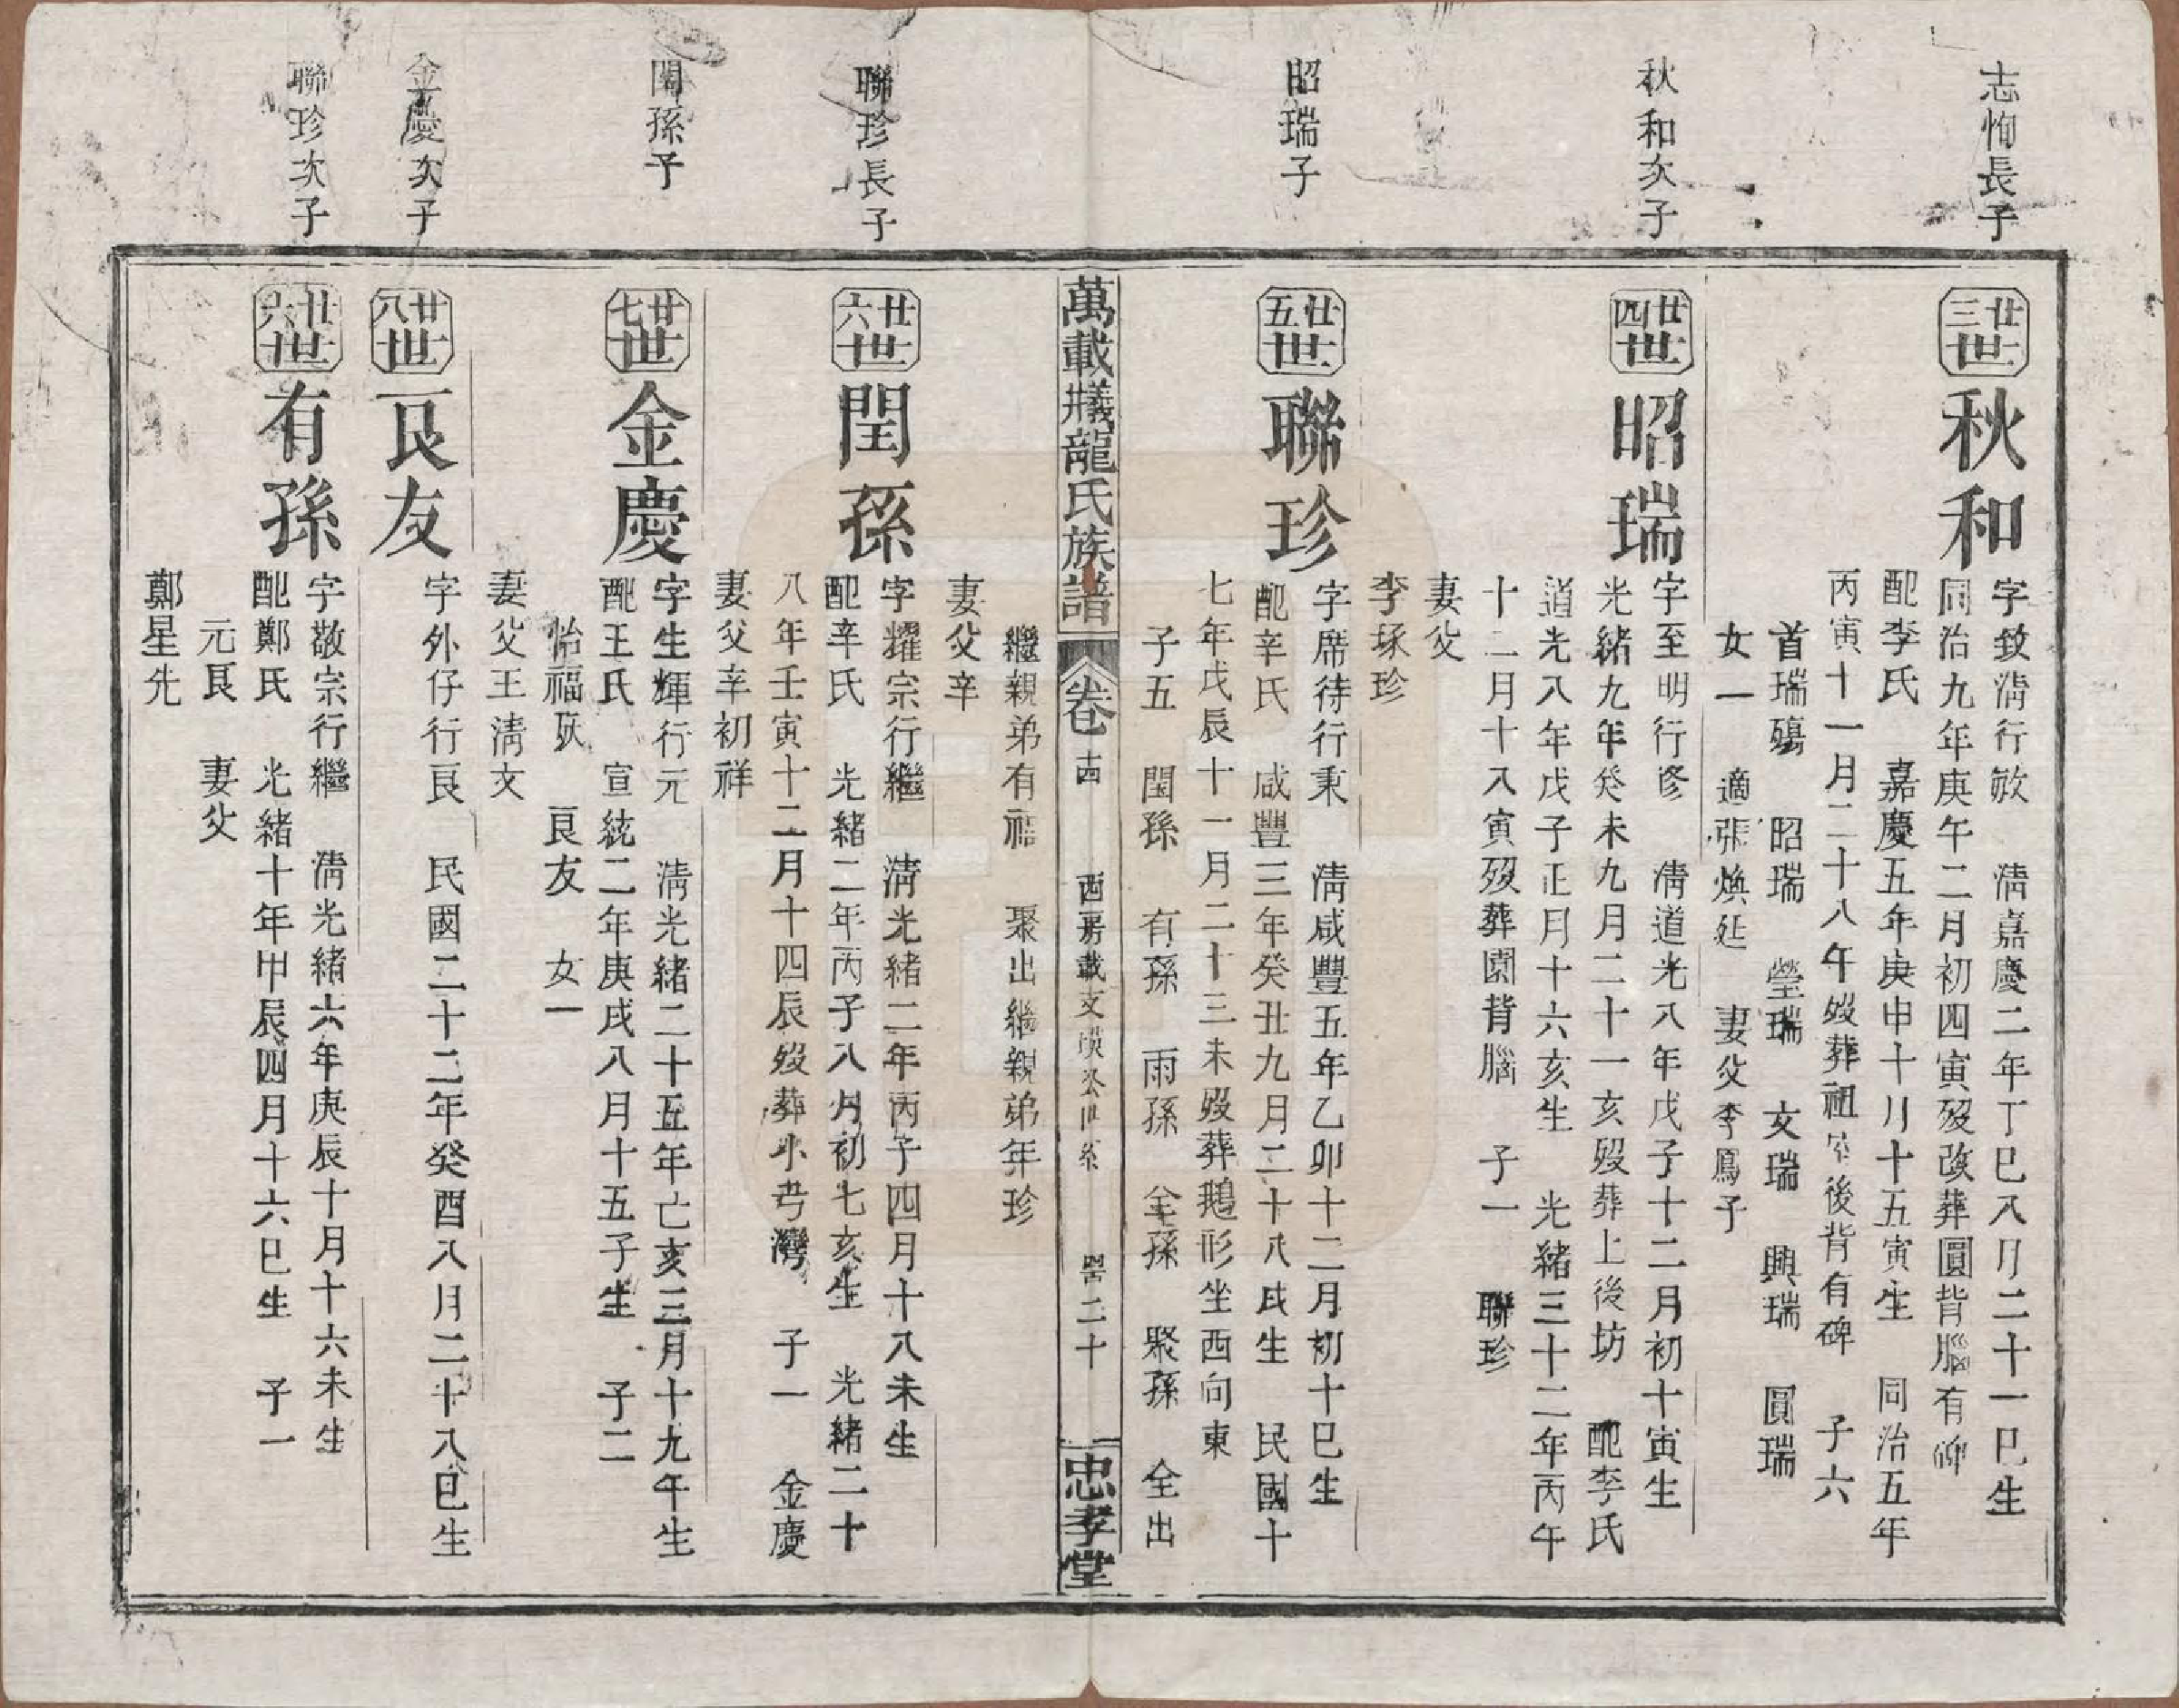 志恂長子
廿三世
秋和
字致淸行敏 淸嘉慶二年丁巳八月二十一巳生
同治九年庚午二月初四寅歿改葬園背腦有碑
配李氏 嘉慶五年庚申十月十五寅生 同治五年
丙寅十一月二十八午歿葬祖堂後背有碑 子六
首瑞殤 昭瑞 瑩瑞 文瑞 興瑞 圓瑞
女一 適張煥廷 妻父李鳳予
秋和次子
廿四世
昭瑞
字至明行修 淸道光八年戊子十二月初十寅生
光緒九年癸未九月二十一亥歿葬上後坊 配李氏
道光八年戊子正月十六亥生 光緒三十二年丙午
十二月十八寅歿葬園背腦 子一 聯珍
妻父
李琢珍
昭瑞子
廿五世
聯珍
字席待行秉 淸咸豐五年乙卯十二月初十巳生
配辛氏 咸豐三年癸丑九月二十八戌生 民國十
七年戊辰十一月二十三未歿葬鵝形坐西向東
子五 閏孫 有孫 雨孫 全孫 聚孫 全出
繼親弟有福 聚出繼親弟年珍
妻父辛
萬載㸌龍氏族譜
卷 西房載支 公世系 二十
忠孝堂
聯珍長子
廿六世
閏孫
字耀宗行繼 淸光緒二年丙子四月十八未生
配辛氏 光緒二年丙子八月初七亥生 光緒二十
八年壬寅十二月十四辰歿葬氺灣 子一 金慶
妻父辛初祥
閏孫子
廿七世
金慶
字生輝行元 淸光緒二十五年亡亥三月十九午生
配王氏 宣統二年庚戌八月十五子生 子二
怡福殀 艮友 女一
妻父王淸文
金慶次子
廿八世
艮友
字外仔行艮 民國二十二年癸酉八月二十八巳生
聯珍次子
廿六世
有孫
字敬宗行繼 淸光緒六年庚辰十月十六未生
配鄭氏 光緒十年甲辰四月十六巳生 子一
元艮 妻父
鄭星先